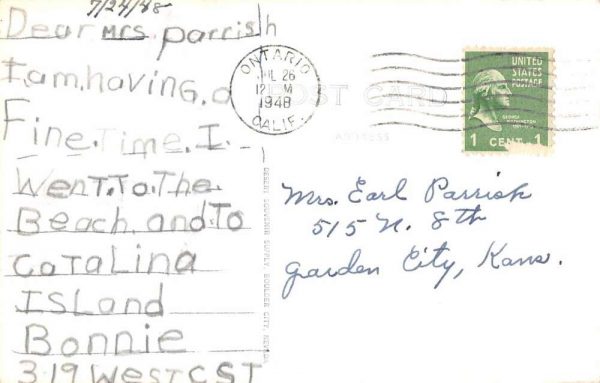 7/24/48
Dear Mrs Parrish
I.am.having.a
Fine.Time.I.
Went.To.The.
Beach.and.To
Catalina
Island
Bonnie
319 West C ST
ONTARIO
JUL 26
12 M
1948
CALIF.
POST CARD
ADDRESS
UNITED
STATES
POSTAGE
GEORGE
WASHINGTON
1 CENT 1
Mrs. Earl Parrish
515 N. 8th
Garden City, Kans.
DESERT SOUVENIR SUPPLY, BOULDER CITY, NEVADA